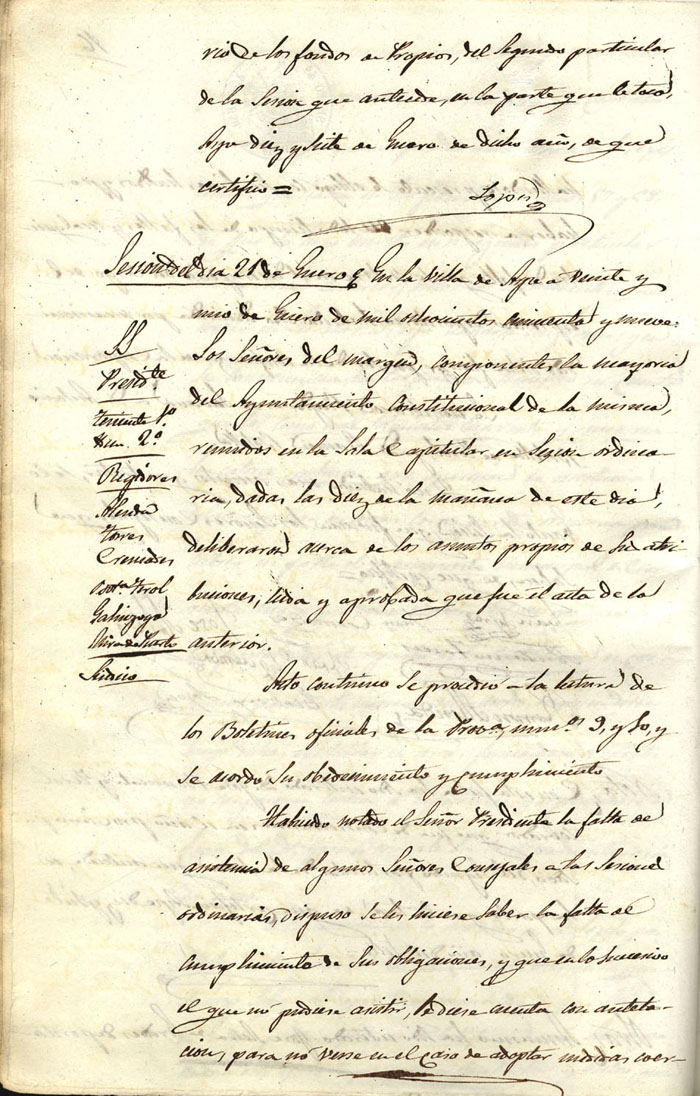 rio de los fondos de Propios, del Segundo particular
de la Sesion que antecede, en la parte que le toca,
Aspe diez y siete de Enero de dicho año, de que
certifico =
Lopez
Sesion del dia 21 de Enero
En la Villa de Aspe a veinte y
uno de Enero de mil ochocientos cincuenta y nueve:
SS
Presid.te
teniente 1.º
Ydem 2.º
Regidores
Almodó
torres
Cremades
Bot.a Erol
Galinsoga
Mira de Juarto
Sindico
Los Señores del margen, componentes la mayoria
del Ayuntamiento Constitucional de la misma,
reunidos en la Sala Capitular en Sesion ordina-
ria, dadas las diez de la mañana de este dia,
deliberaron acerca de los asuntos propios de su atri
buciones, leida y aprobada que fue el acta de la
anterior.
Acto continuo se procedió a la lectura de
los Boletines oficiales de la Prov.a, num.os 9, y 10, y
se acordó su obedecimiento y cumplimiento
Habiendo notado el Señor Presidente la falta de
asistencia de algunos Señores Consejales a las Sesiones
ordinarias, dispuso se les hiciese saber la falta de
cumplimiento de sus obligaciones, y que en lo sucesivo
el que nó pudiese asistir, diese cuenta con antela-
cion, para nó verse en el caso de adoptar medidas coer-